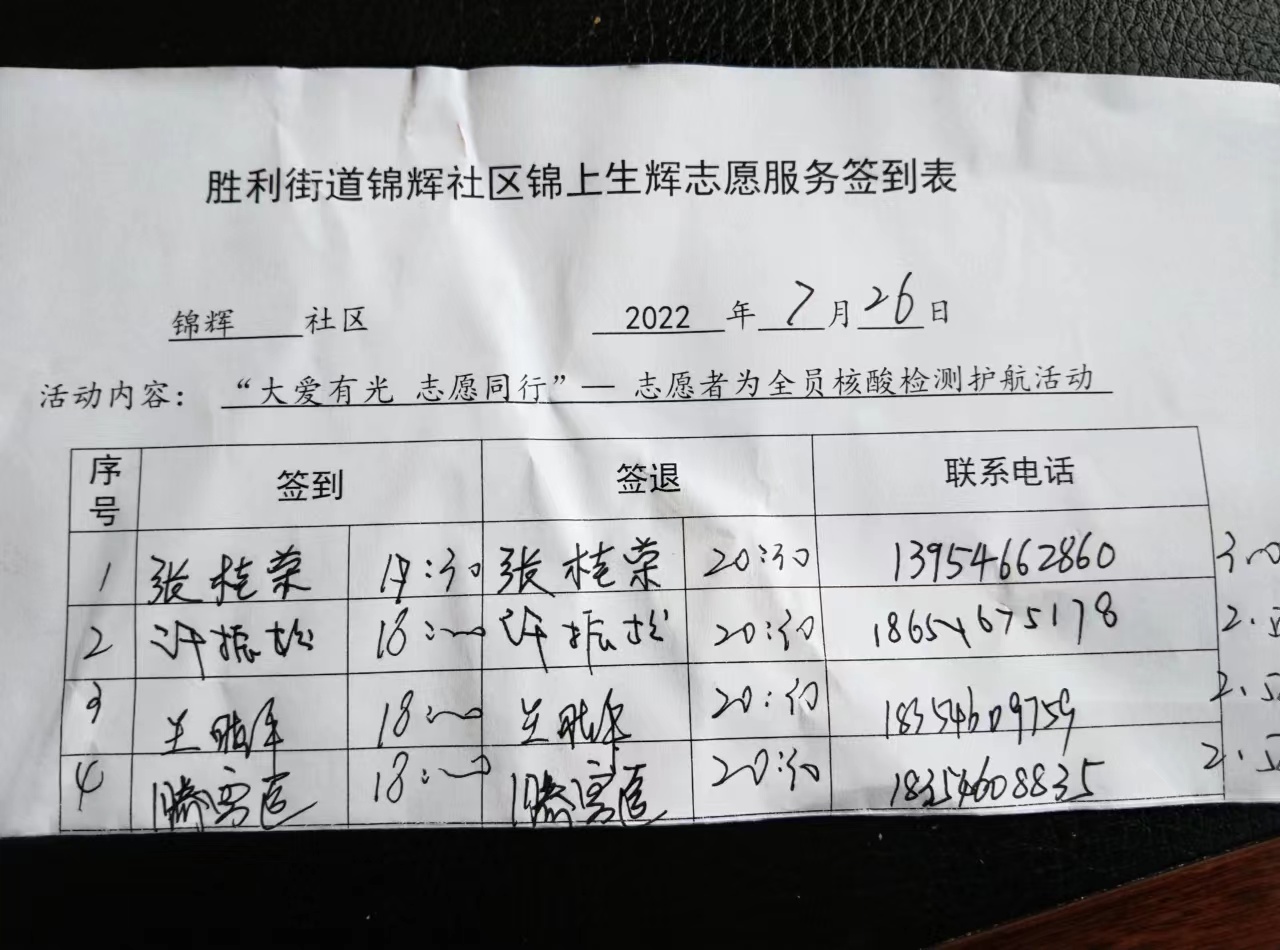 胜利街道锦辉社区锦上生辉志愿服务签到表
锦辉 社区 2022 年 7 月 26 日
活动内容: “大爱有光 志愿同行”— 志愿者为全员核酸检测护航活动
序号 签到 签退 联系电话
1 张桂荣 17:30 张桂荣 20:30 13954662860 3.00
2 许振松 18:00 许振松 20:30 18654675178 2.5
3 18:00 20:30 18354609759 2.5
4 18:00 20:30 18354608835 2.5